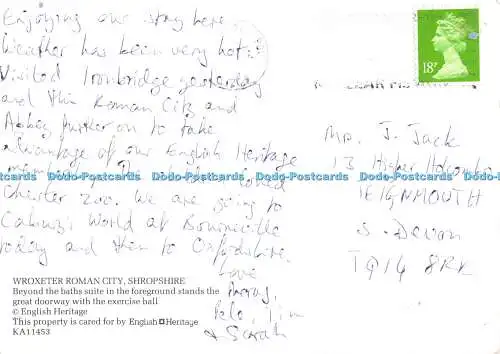 Enjoying our stay here.
Weather has been very hot!
Visited Ironbridge yesterday
and this Roman City and
Abbey further on to take
advantage of our English Heritage
membership. loved
Chester Zoo. We are going to
Cadbury World at Bournville
today and then to Oxfordshire.
Love
Pete, Tim
& Sarah
18P
Mr. J. Jack
13 Higher Holcombe
TEIGNMOUTH
S. Devon
TQ14 8RK
Dodo-Postcards Dodo-Postcards Dodo-Postcards Dodo-Postcards
WROXETER ROMAN CITY, SHROPSHIRE
Beyond the baths suite in the foreground stands the
great doorway with the exercise hall
© English Heritage
This property is cared for by English Heritage
KA11453